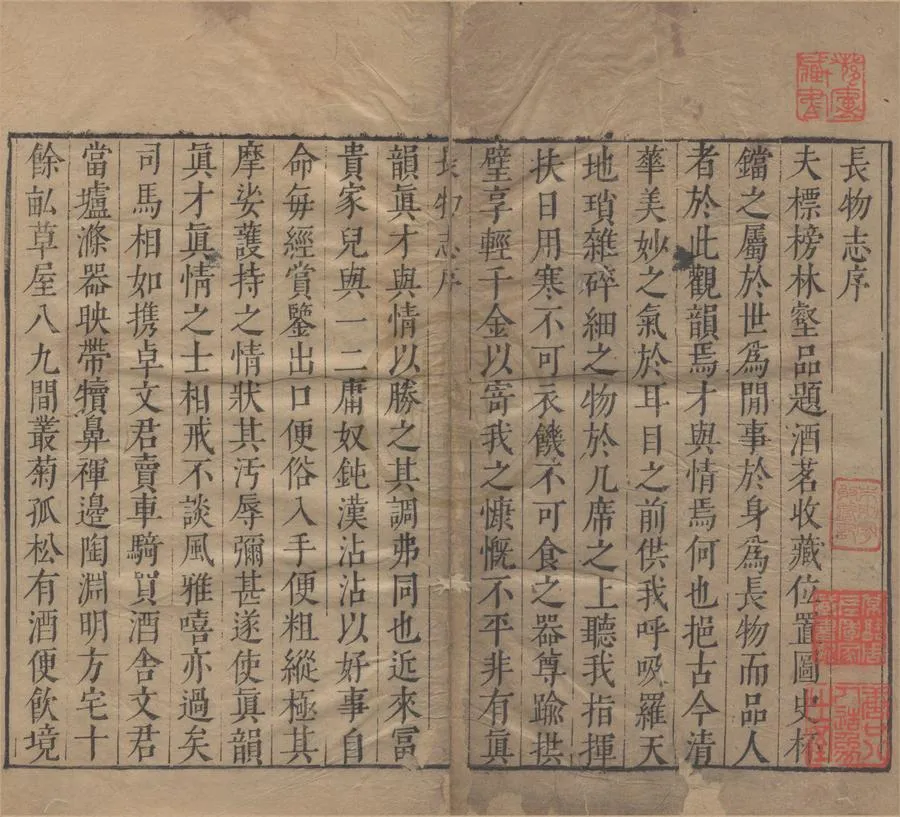 長物志序
夫標榜林壑品題酒茗收藏位置圖史杯
鐺之屬於世爲閒事於身爲長物而品人
者於此觀韻焉才與情焉何也挹古今清
華美妙之氣於耳目之前供我呼吸羅天
地瑣雜碎細之物於几席之上聽我指揮
挾日用寒不可衣饑不可食之器尊踰拱
璧享輕千金以寄我之慷慨不平非有眞
長物志序
韻眞才與情以勝之其調弗同也近來富
貴家兒與一二庸奴鈍漢沾沾以好事自
命每經賞鑒出口便俗入手便粗縱極其
摩娑護持之情狀其汚辱彌甚遂使眞韻
眞才眞情之士相戒不談風雅嘻亦過矣
司馬相如携卓文君賣車騎買酒舍文君
當壚滌器映帶犢鼻褌邊陶淵明方宅十
餘畝草屋八九間叢菊孤松有酒便飲境